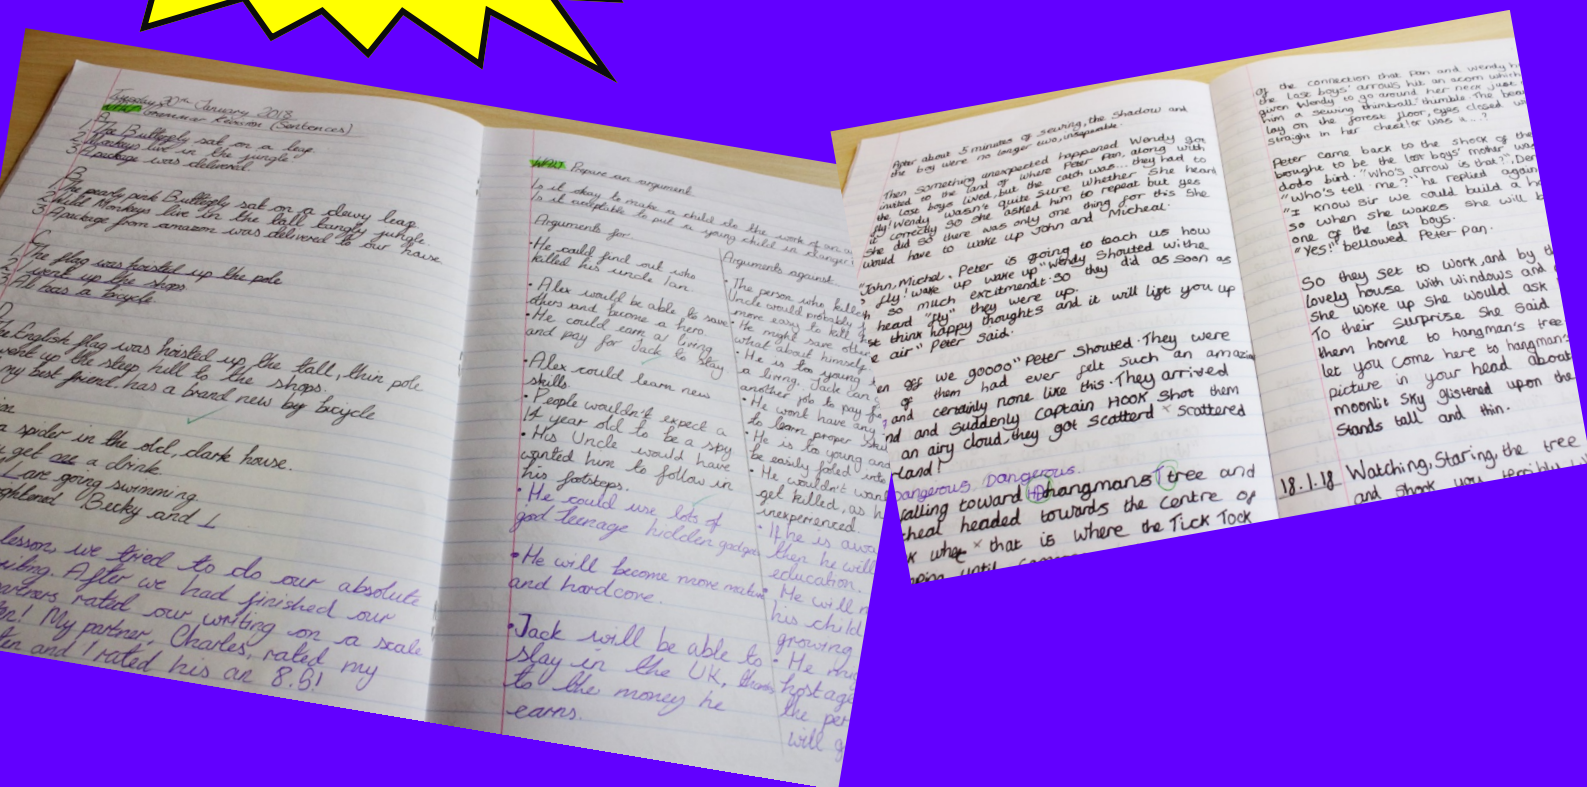 Tuesday 30th January 2018
Grammar Revision (Sentences)
A
1. The Butterfly sat on a leaf
2. Monkeys live in the jungle
3. A package was delivered
B
1. The pearly pink Butterfly sat on a dewy leaf
2. Wild Monkeys live in the tall jungly jungle
3. A package from amazon was delivered to our house
C
The flag was hoisted up the pole
2. I went up the shops
3. Ali has a bicycle
D
The English flag was hoisted up the tall, thin pole
went up the steep hill to the shops.
my best friend has a brand new big bicycle
a spider in the old, dark house.
get me a drink
I are going swimming
Becky and I
lesson we tried to do our absolute
After we had finished our
rated our writing on a scale
My partner, Charles, rated my
and I rated his an 8.5!
Prepare an argument
Is it okay to make a child do the work of an
Is it acceptable to put a young child in danger?
Arguments for
• He could find out who
killed his uncle Ian.
• Alex would be able to save
others and become a hero.
• He could earn a living
and pay for Jack to stay
• Alex could learn new
skills.
• People wouldn't expect a
14 year old to be a spy
• His Uncle would have
wanted him to follow in
his footsteps.
• He could use lots of
good teenage hidden gadgets
• He will become more mature
and hardcore.
• Jack will be able to
stay in the UK, thanks
to the money he
earns.
Arguments against
• The person who killed
Uncle would probably
more easy to kill
• He might save other
what about himself
• He is too young
a living. Jack can
another job to pay for
• He wont have any
to learn proper
• He is too young and
be easily foled into
• He wouldn't want
get killed, as h
inexperienced.
• If he is away
then he will
education.
• He will n
his child
growing
• He mig
hostage
the per
will g
After about 5 minutes of sewing, the shadow and
the boy were no longer two, inseparable.
Then something unexpected happened Wendy got
invited to the land of where Peter Pan, along with
the lost boys lived, but the catch was... they had to
fly! Wendy wasn't quite sure whether she heard
it correctly so she asked him to repeat but yes
She did so there was only one thing for this she
would have to wake up John and Micheal.
"John, Michel. Peter is going to teach us how
fly! wake up wake up" Wendy Shouted with
so much excitmendt. So they did as soon as
heard "fly" they were up.
st think happy thoughts and it will lift you up
e air" Peter said.
en off we goooo" Peter shouted. They were
of them had ever felt such an amazin
and certainly none like this. They arrived
nd and suddenly Captain Hook shot them
an airy cloud, they got scatterd × scattered
land!
Dangerous Dangerous.
alling toward hangmans tree and
cheal headed towards the centre of
k × that is where the Tick Tock
of the connection that Pan and Wendy h
the lost boys' arrows hit an acorn which
given Wendy to go around her neck just
him a sewing thimball thumble. The bea
lay on the forest floor, eyes closed w
straight in her chest! or was it ...?
Peter came back to the shock of the
brought to be the lost boys' mother was
dodo bird. "Who's arrow is that?", Den
"Who's tell me?" he replied again
"I know sir we could build a h
so when she wakes she will b
one of the lost boys.
"Yes!" bellowed Peter Pan.
So they set to work, and by t
lovely house with windows and
She woke up she would ask
To their surprise she said
them home to hangman's tree
let you come here to hangman
picture in your head about
moonlit sky glistered upon the
stands tall and thin.
18.1.18 Watching, staring, the tree
and shook you terribly